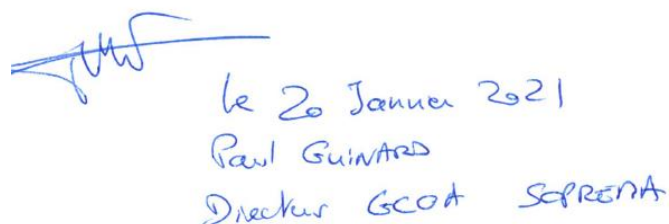 le 20 Janvier 2021
Paul GUINARD
Directeur GCOA SOPREMA